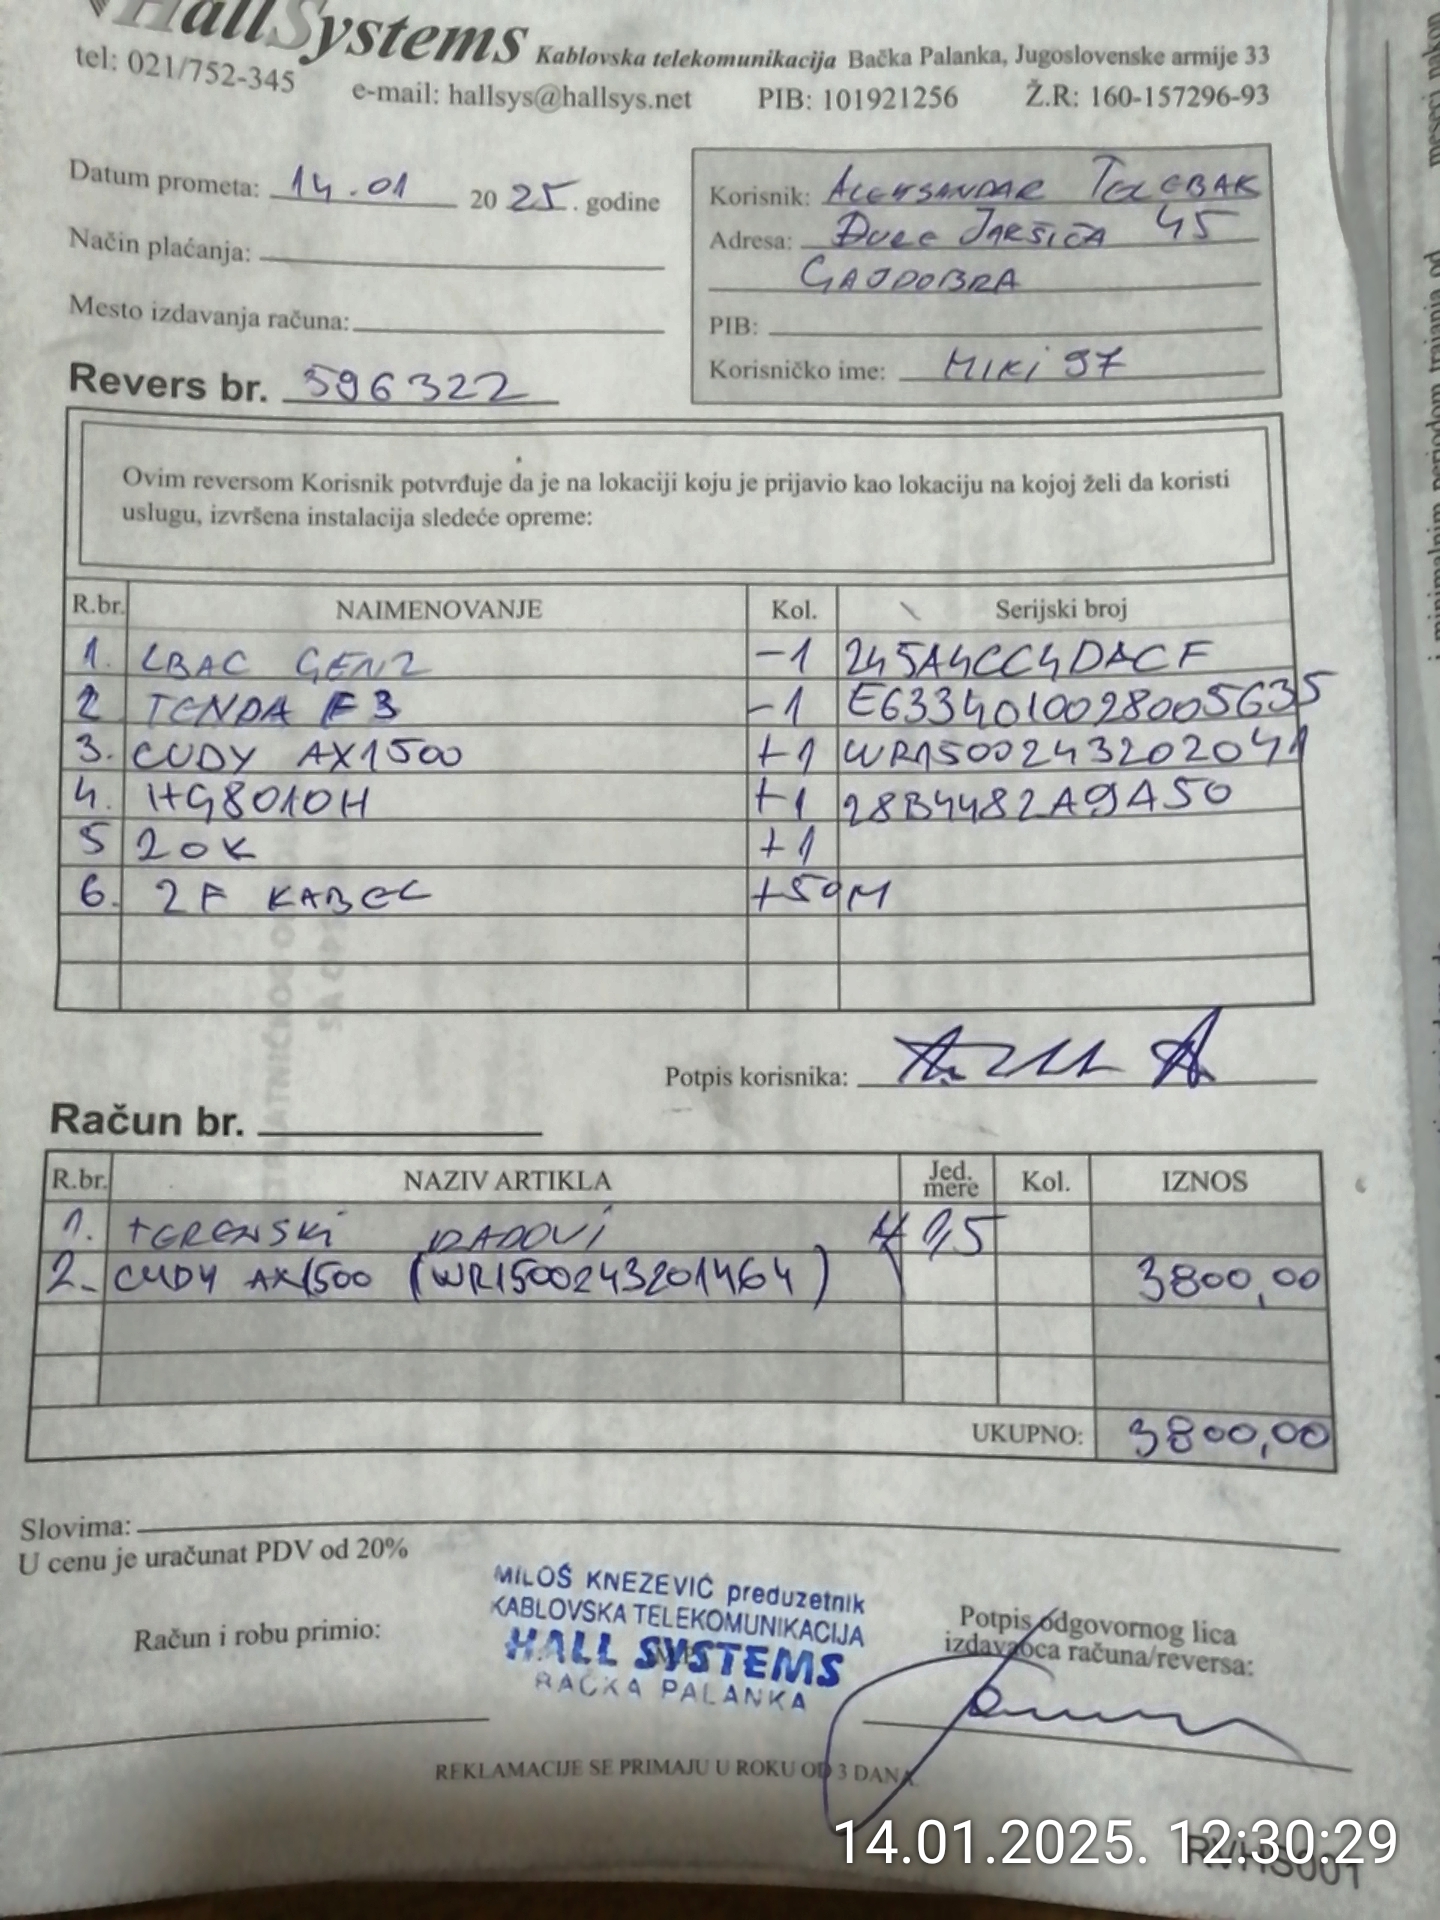 HallSystems Kablovska telekomunikacija Bačka Palanka, Jugoslovenske armije 33
tel: 021/752-345 e-mail: hallsys@hallsys.net PIB: 101921256 Ž.R: 160-157296-93
Datum prometa: 14.01 2025. godine
Način plaćanja:
Mesto izdavanja računa:
Revers br. 596322
Korisnik: ALEKSANDAR
Adresa: ĐURE JAKŠIĆA 45
GAJDOBRA
PIB:
Korisničko ime: MIKI 97
Ovim reversom Korisnik potvrđuje da je na lokaciji koju je prijavio kao lokaciju na kojoj želi da koristi
uslugu, izvršena instalacija sledeće opreme:
R.br. NAIMENOVANJE Kol. Serijski broj
1. LBAC GEN2 -1 245A4CC4DACF
2 TENDA F3 -1 E6334010028005635
3. CUDY AX1500 +1 WR1500243202041
4. HG8010H +1 28B4482A9A50
5 ZOK +1
6. 2F KABEL +50M
Potpis korisnika:
Račun br.
R.br. NAZIV ARTIKLA Jed. mere Kol. IZNOS
1. TERENSKI RADOVI 1,5
2. CUDY AX1500 (WR1500243201464) 3800,00
UKUPNO: 3800,00
Slovima:
U cenu je uračunat PDV od 20%
MILOŠ KNEŽEVIĆ preduzetnik
KABLOVSKA TELEKOMUNIKACIJA
HALL SYSTEMS
BAČKA PALANKA
Račun i robu primio:
Potpis odgovornog lica
izdavaoca računa/reversa:
REKLAMACIJE SE PRIMAJU U ROKU OD 3 DANA.
14.01.2025. 12:30:29
RVHS001
meseci nakon
i minimalnim periodom trajanja od